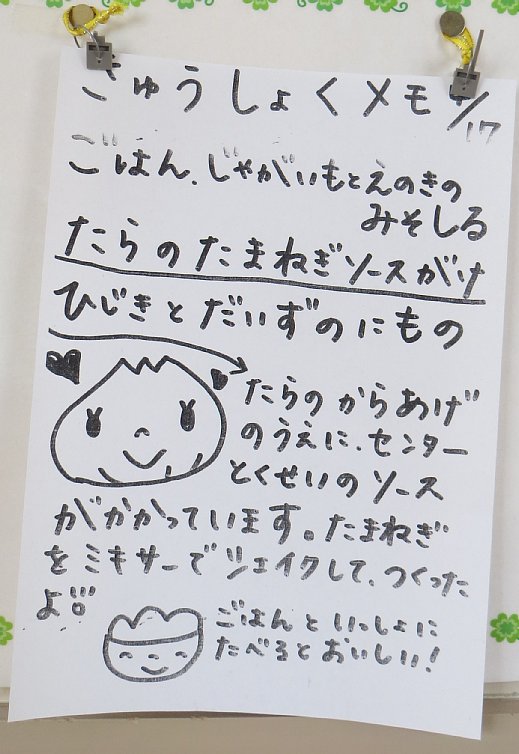 きゅうしょくメモ /17
ごはん、じゃがいもとえのきの
みそしる
たらのたまねぎソースがけ
ひじきとだいずのにもの
たらのからあげ
のうえに、センター
とくせいのソース
がかかっています。たまねぎ
をミキサーでシェイクして、つくった
よ!!
ごはんといっしょに
たべるとおいしい!